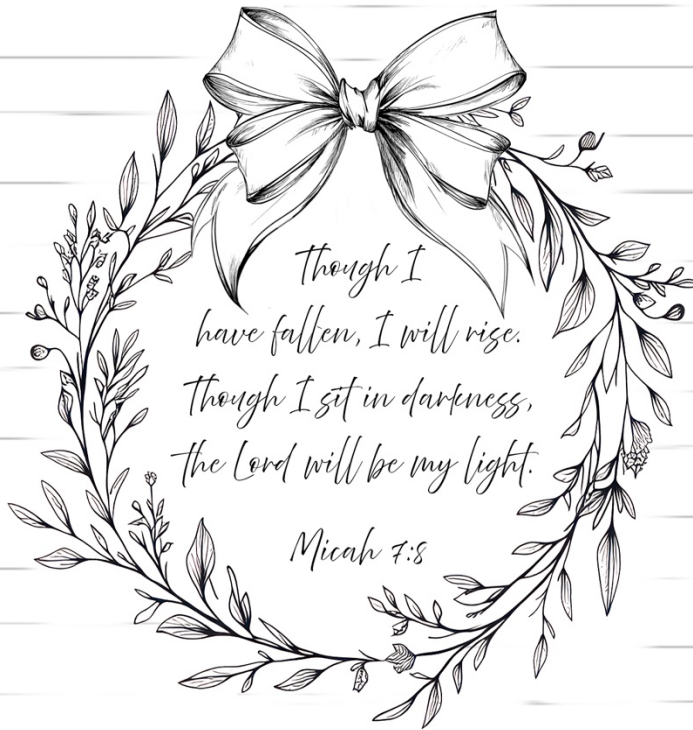 Though I
have fallen, I will rise.
Though I sit in darkness,
the Lord will be my light.
Micah 7:8